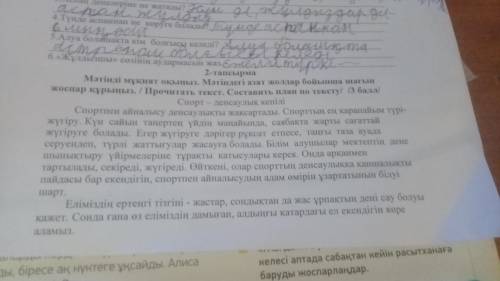 4.Түнде аспаннан не көруге болады? Түнде аспаннан
5.Алуа болашақта кім болғысы келеді? Алуа болашақта
6.«Жұлдызшы» сөзінің аудармасын жаз
2-тапсырма
Мәтінді мұқият оқыңыз. Мәтіндегі азат жолдар бойынша шағын
жоспар құрыңыз. / Прочитать текст. Составить план по тексту/ /3 балл/
Спорт – денсаулық кепілі
Спортпен айналысу денсаулықты жақсартады. Спорттың ең қарапайым түрі-
жүгіру. Күн сайын таңертең үйдің маңайында, саябақта жарты сағаттай
жүгіруге болады. Егер жүгіруге дәрігер рұқсат етпесе, таңғы таза ауада
серуендеп, түрлі жаттығулар жасауға болады. Білім алушылар мектептің дене
шынықтыру үйірмелеріне тұрақты қатысулары керек. Онда арқанмен
тартылады, секіреді, жүгіреді. Өйткені, олар спорттың денсаулыққа қаншалықты
пайдасы бар екендігін, спортпен айналысудың адам өмірін ұзартатынын білуі
шарт.
Еліміздің ертеңгі тізгіні - жастар, сондықтан да жас ұрпақтың дені сау болуы
қажет. Сонда ғана өз еліміздің дамыған, алдыңғы қатардағы ел екендігін көре
аламыз.
ды, біресе ақ нүктеге ұқсайды. Алиса
келесі аптада сабақтан кейін расытханаға
баруды жоспарландар.